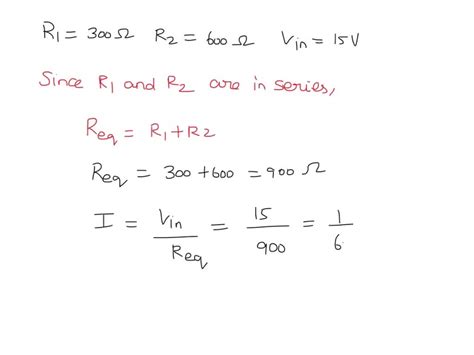 R1 = 300Ω R2 = 600Ω Vin = 15V
Since R1 and R2 are in series,
Req = R1+R2
Req = 300+600 = 900 Ω
I = Vin/Req = 15/900 = 1/6